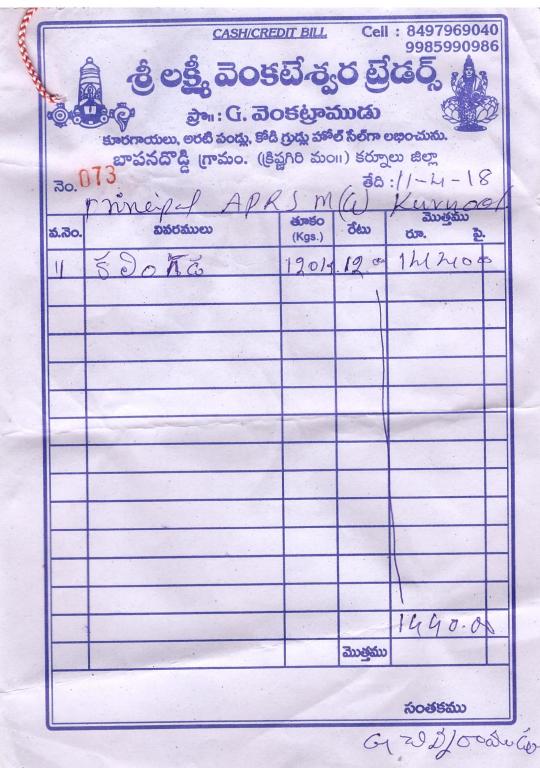 CASH/CREDIT BILL Cell : 8497969040
9985990986
శ్రీ లక్ష్మీ వెంకటేశ్వర ట్రేడర్స్
ప్రొ॥ : G. వెంకట్రాముడు
కూరగాయలు, అరటి పండ్లు, కోడి గ్రుడ్లు హోల్ సేల్‌గా లభించును.
బాపనదొడ్డి గ్రామం. (క్రిష్ణగిరి మం॥) కర్నూలు జిల్లా
నెం. 073 తేది : 11-4-18
Principal APRS M(W) Kurnool
వ.నెం. వివరములు తూకం (Kgs.) రేటు మొత్తము రూ. పై.
1) కలింగడ 120kg 12.00 1440.00
1440.00
మొత్తము
సంతకము